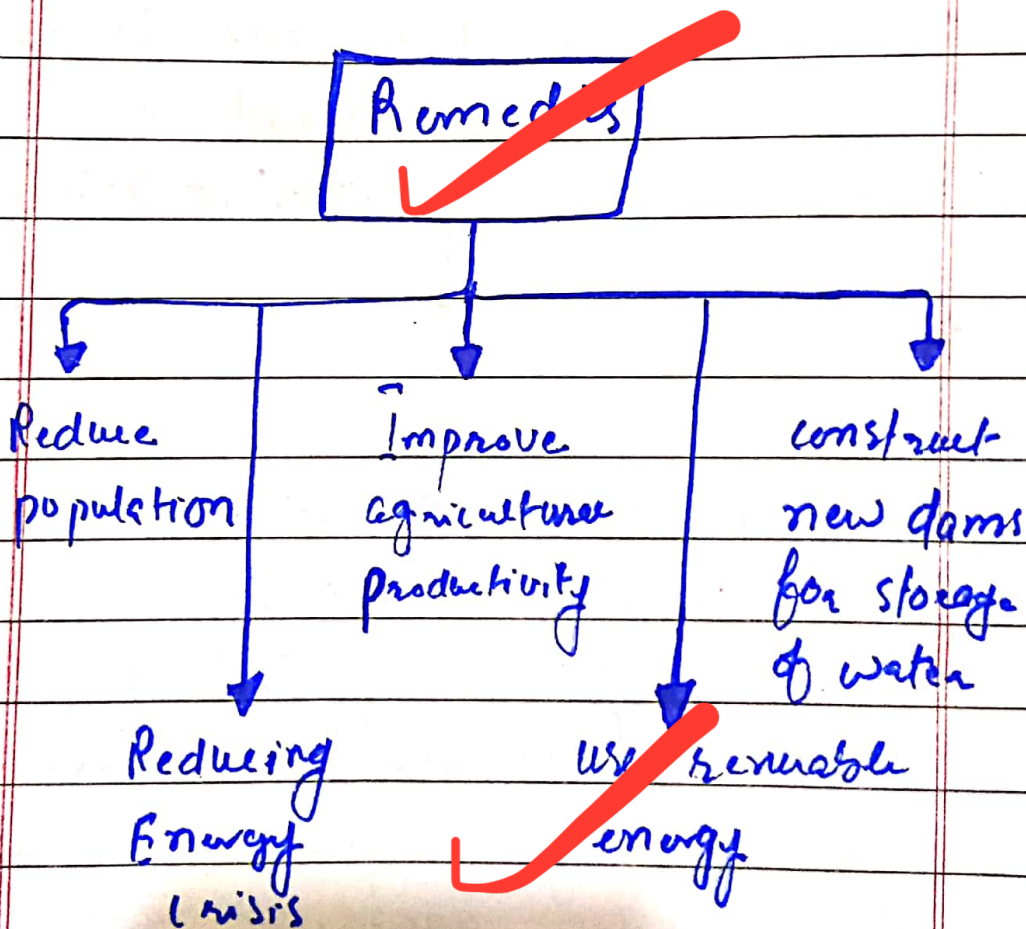 Remedies
Reduce
population
Improve
agricultural
productivity
construct
new dams
for storage
of water
Reducing
Energy
Crisis
use renewable
energy